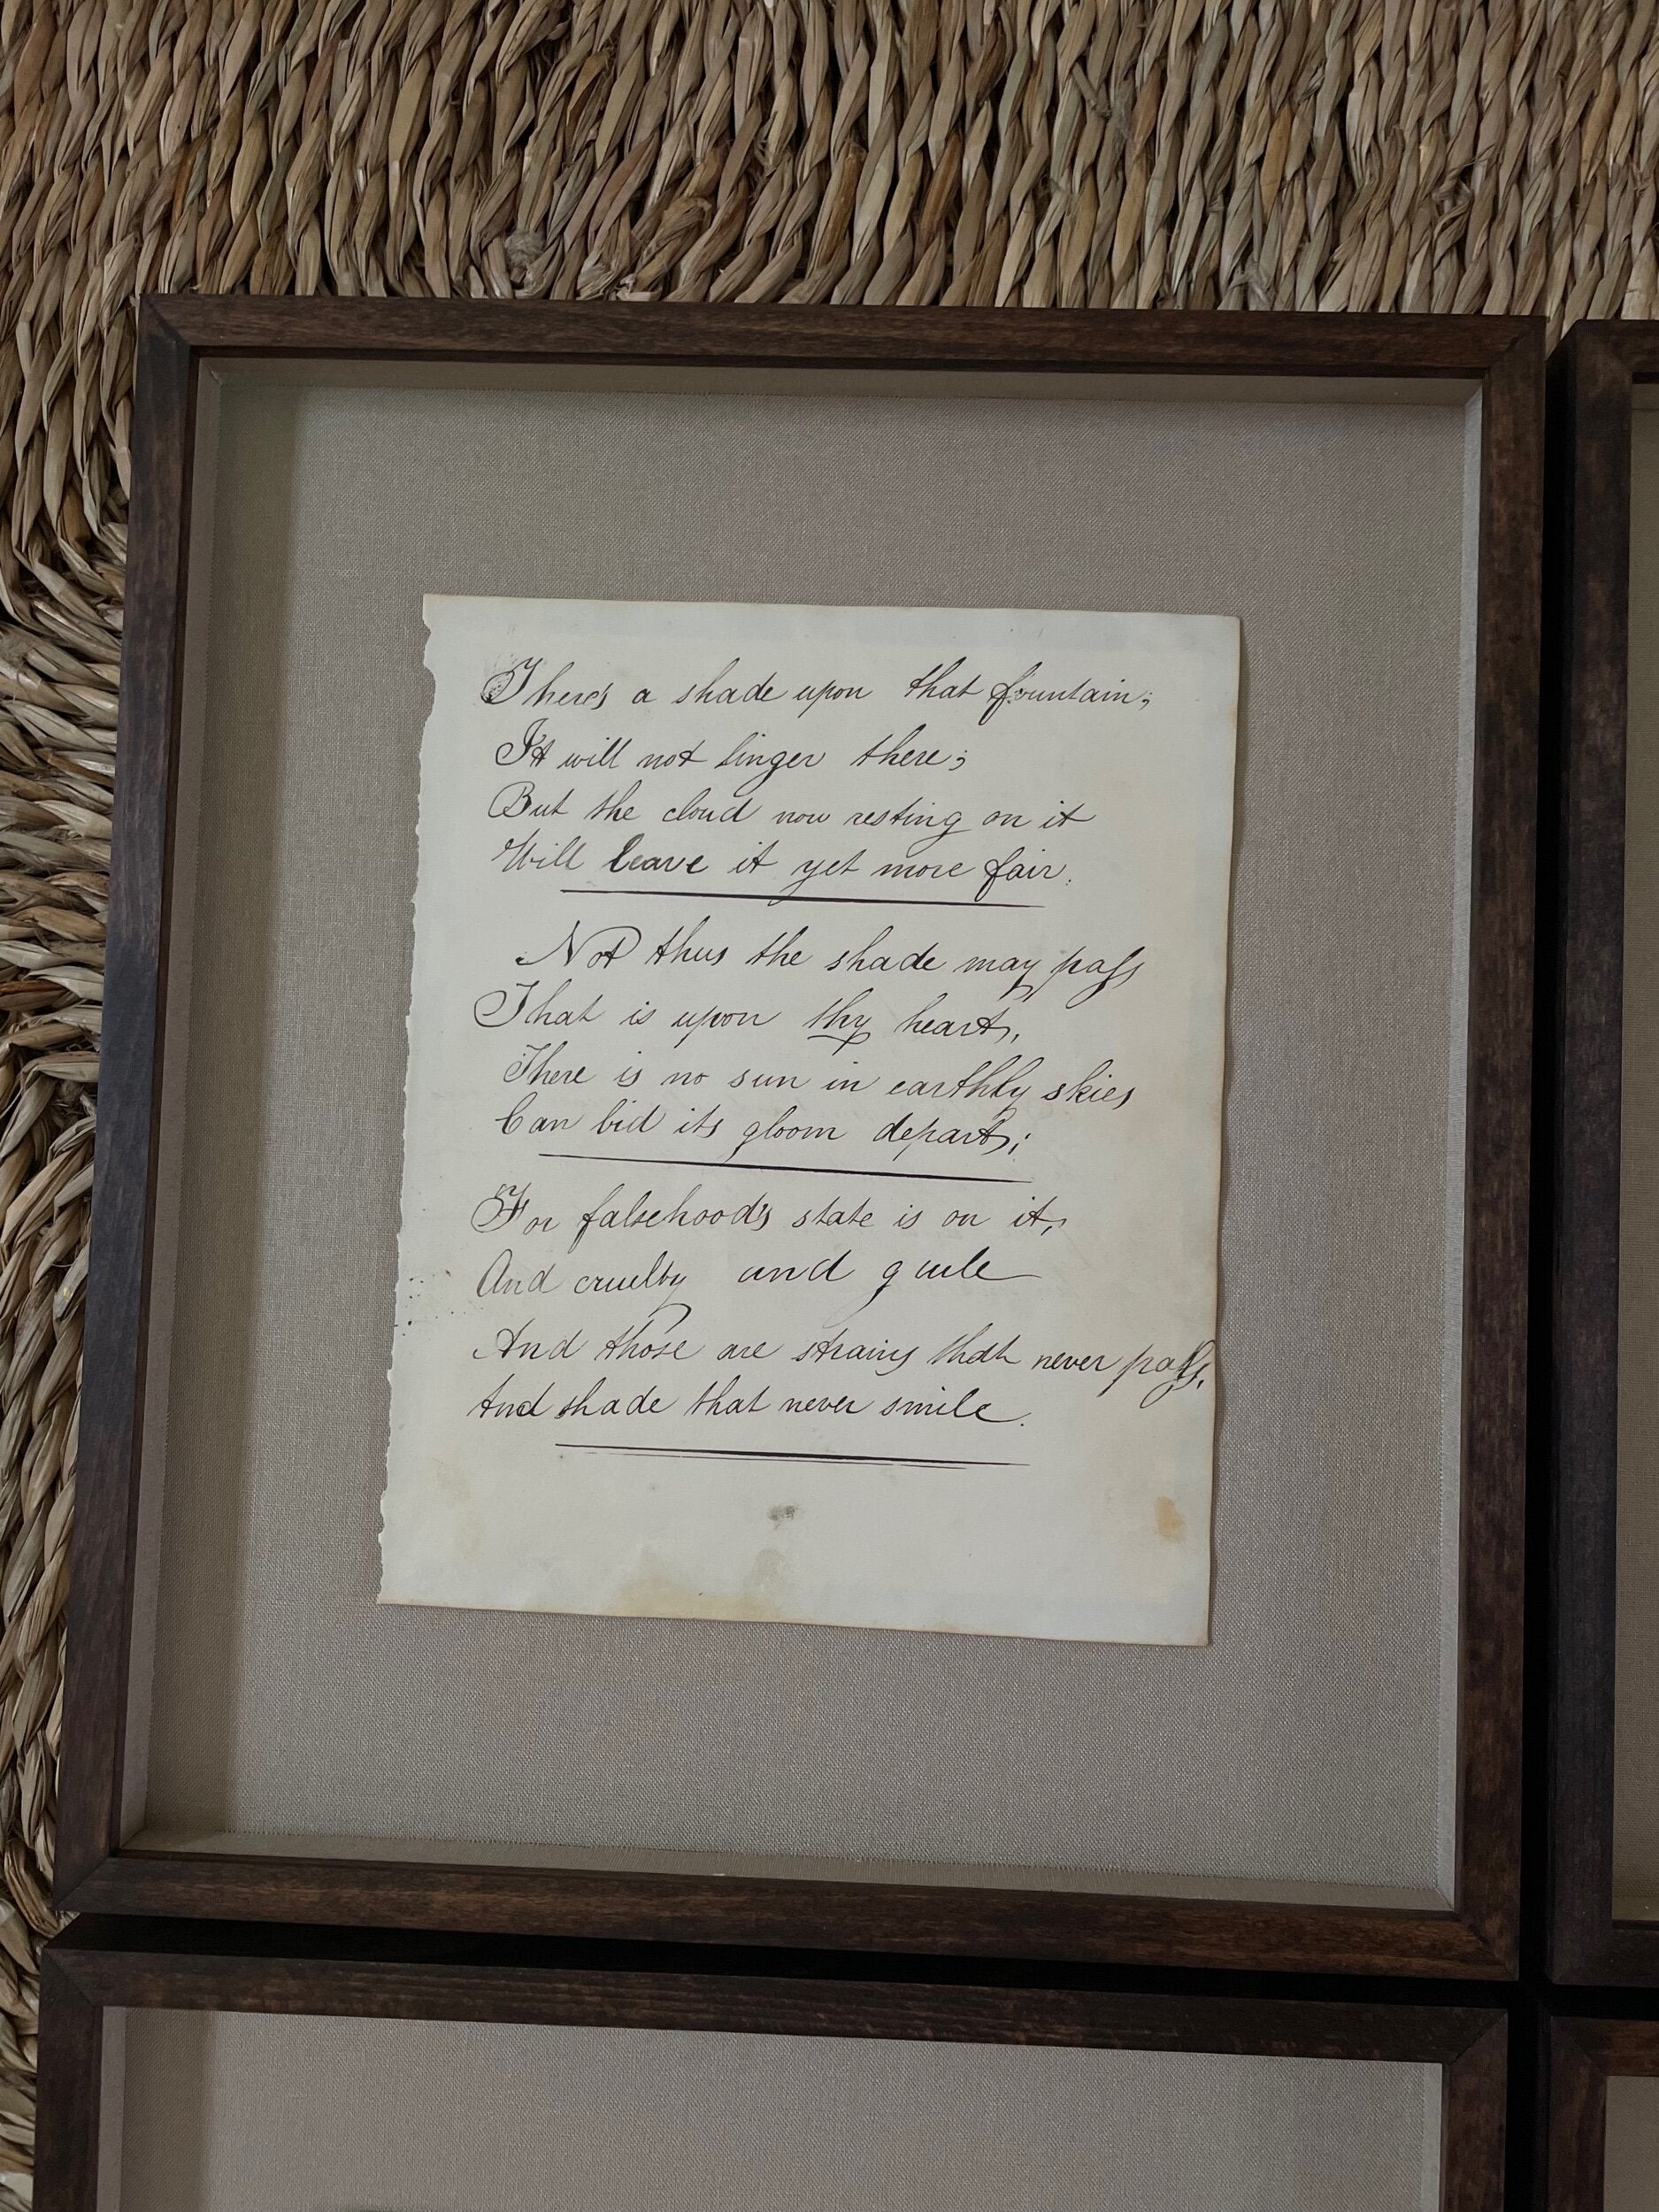 There's a shade upon that fountain;
It will not linger there;
But the cloud now resting on it
Will leave it yet more fair.
Not thus the shade may pass
That is upon thy heart,
There is no sun in earthly skies
Can bid its gloom depart;
For falsehood's state is on it,
And cruelty and guile
And those are strains that never pass,
And shade that never smile.